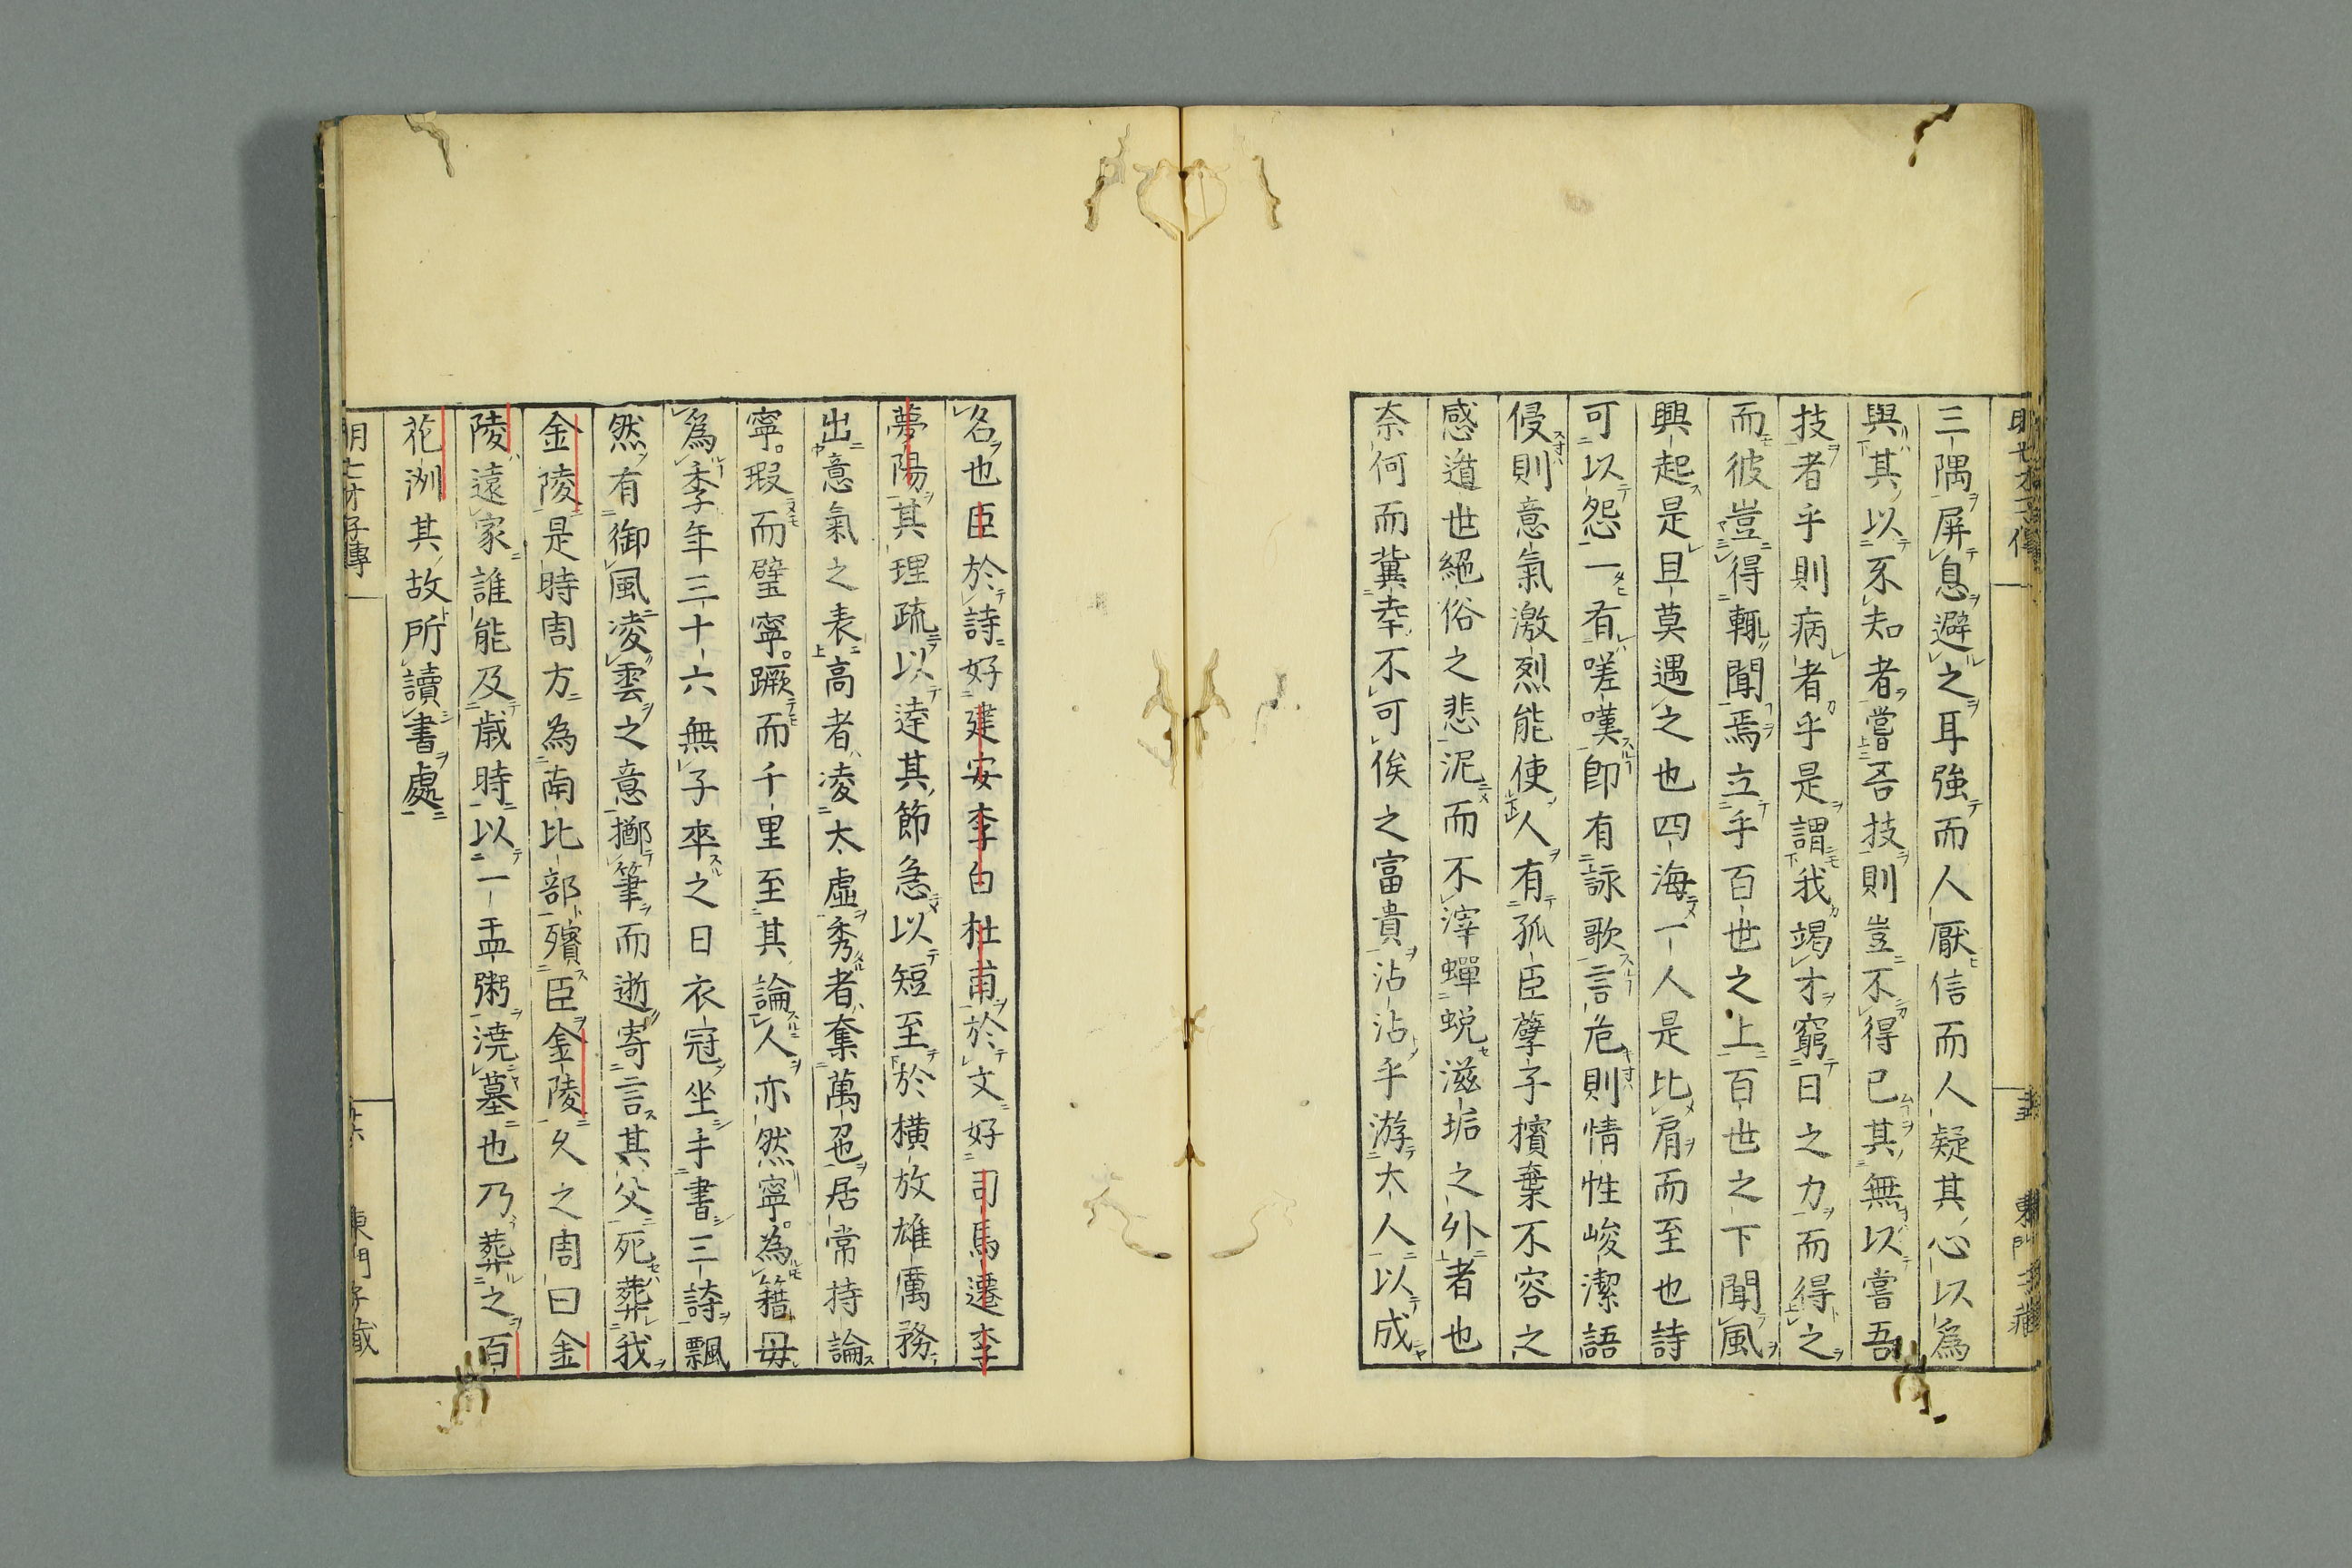 三隅屏息避之耳強而人厭信而人疑其心以為
與其以不知者嘗吾技則豈不得已其無以嘗吾
技者乎則病者乎是謂我竭才窮日之力而得之
而彼豈得輙聞焉立乎百世之上百世之下聞風
興起是且莫遇之也四海一人是比肩而至也詩
可以怨一有嗟嘆即有詠歌言危則情性峻潔語
侵則意氣激烈能使人有孤臣孽子擯棄不容之
感遁世絕俗之悲泥而不滓蟬蛻滋垢之外者也
奈何而冀幸不可俟之富貴沾沾乎游大人以成
名也臣於詩好建安李白杜甫於文好司馬遷李
夢陽其理疏以達其節急以短至於橫放雄厲務
出意氣之表高者凌太虛秀者奪萬色居常持論
寧瑕而璧寧蹶而千里至其論人亦然寧為籍毋
為季年三十六無子卒之日衣冠坐手書三詩飄
然有御風凌雲之意擲筆而逝寄言其父死葬我
金陵是時周方為南比部殯臣金陵久之周曰金
陵遠家誰能及歲時以一盂粥澆墓也乃葬之百
花洲其故所讀書處
明七才子傳